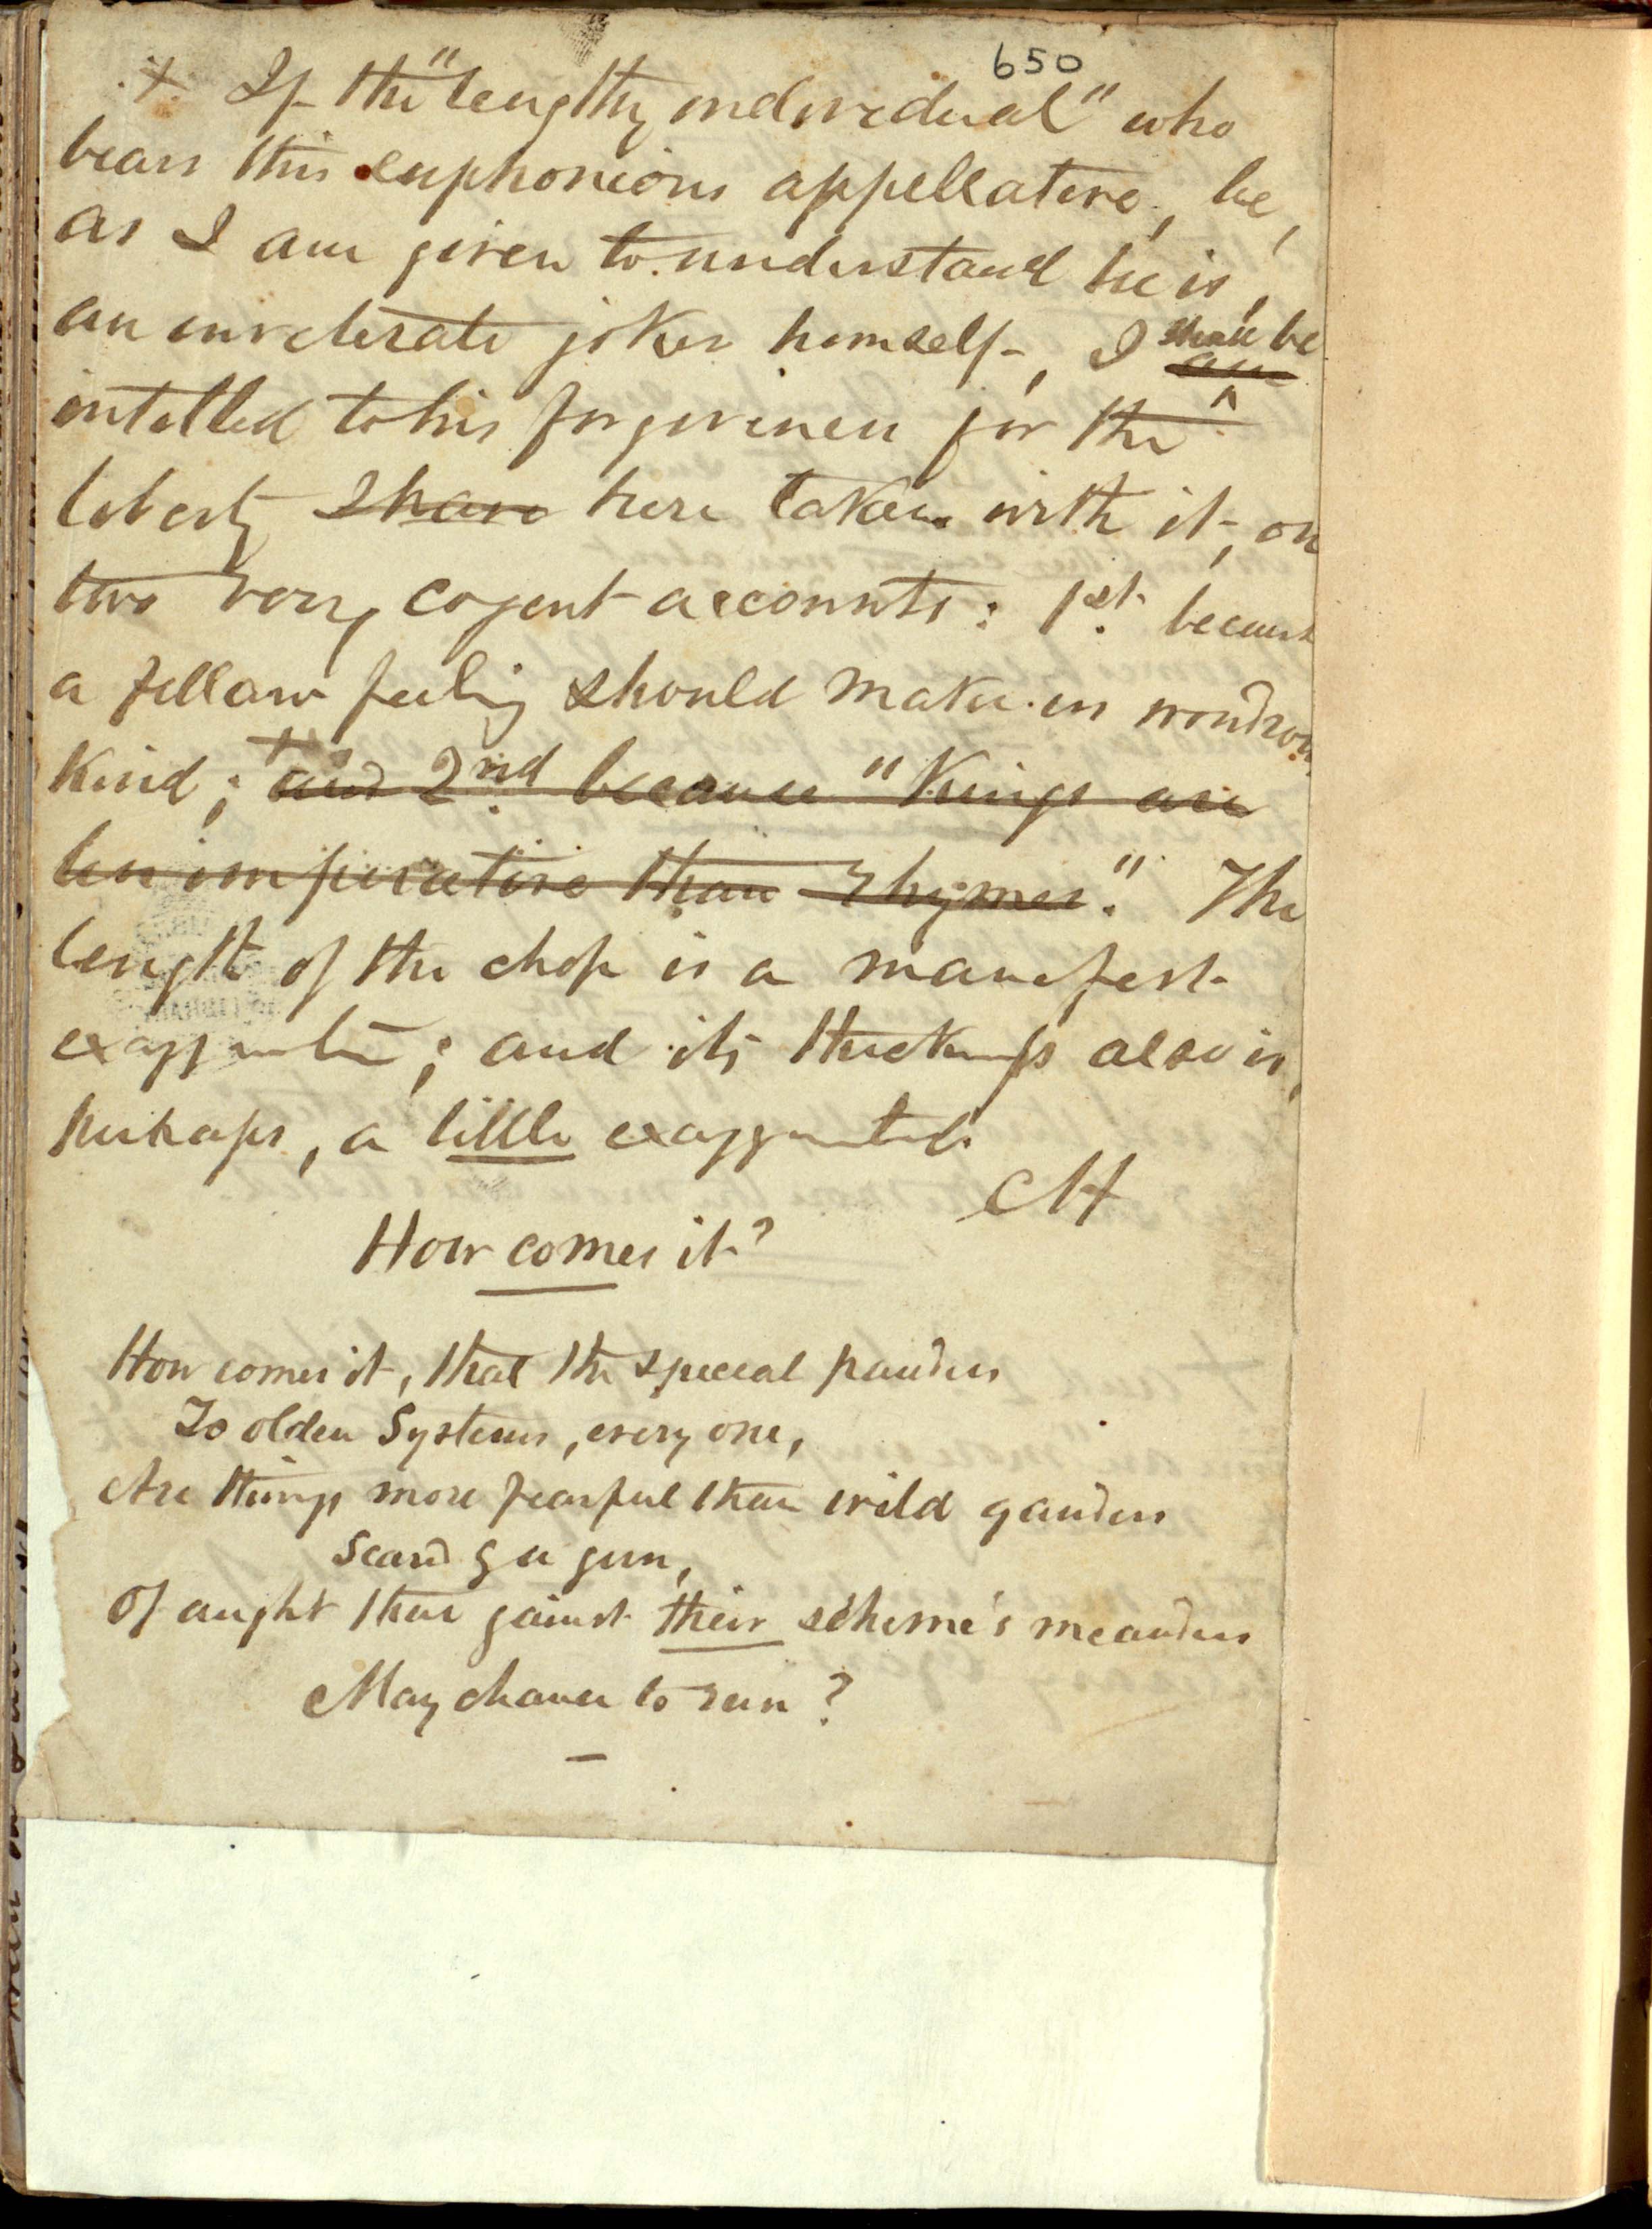 650
+ If the "lengthy individual" who
bears this euphonious appellative, be,
as I am given to understand he is,
an inveterate joker himself, I shall be
am ^
intitled to his forgiveness for the
liberty I have here taken with it, on
two very cogent accounts: 1st. because
a fellow feeling should make us wondrous
kind; + and 2nd because "Kings are
less imperative than rhymes." The
length of the chop is a manifest
exaggeration; and its thickness also is,
perhaps, a little exaggerated.
CH
How comes it?
How comes it, that the special panders
To olden Systems, every one,
Are things more fearful than wild ganders
Scared by a gun,
Of aught that gainst their scheme's meanders
May chance to run?